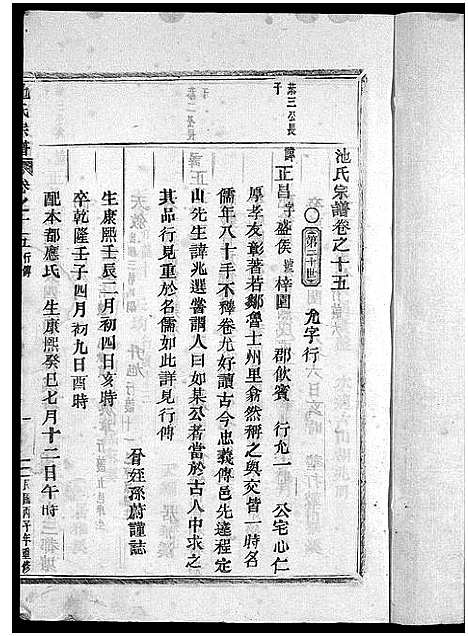 池氏宗譜卷之十五
○第二十世　允字行
葉三公長子
諱正昌字盛侯號梓園　郡飲賓　行允一　公宅心仁
厚孝友彰著若鄒魯士州里翕然稱之與交皆一時名
儒年八十手不釋卷尤好讀古今忠義傳邑先達程定
山先生諱兆選嘗謂人曰如某公者當於古人中求之
其品行見重於名儒如此詳見行傳
眷姪孫蔚謹誌
生康熙壬辰二月初四日亥時
卒乾隆壬子四月初九日酉時
配本都應氏　生康熙癸巳七月十二日午時
池氏宗譜　卷之十五　行傳
一
民國丙子年重修